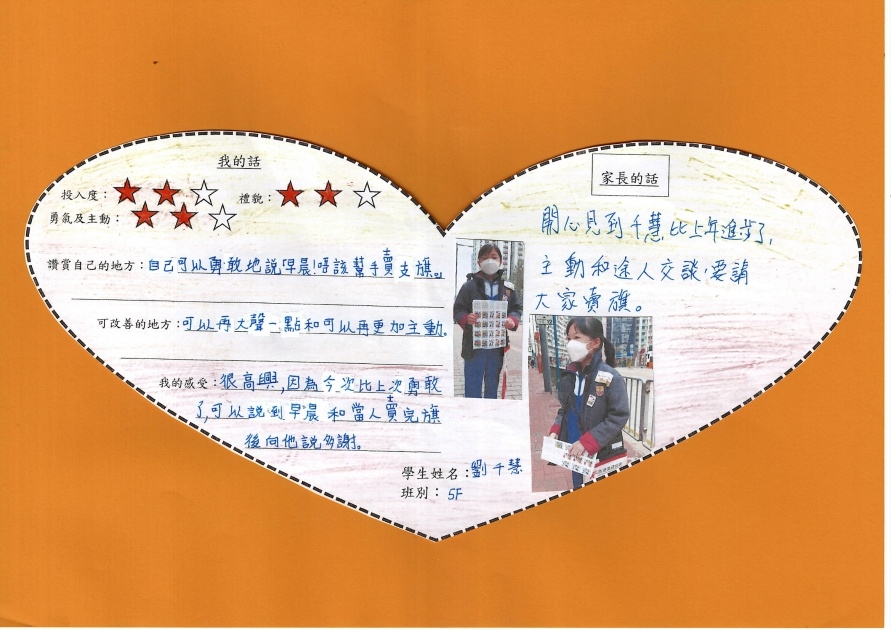 我的話
投入度：★★☆ 禮貌：★★☆
勇氣及主動：★★☆
讚賞自己的地方：自己可以勇敢地説「早晨！唔該幫手賣支旗。」
可改善的地方：可以再大聲一點和可以再更加主動。
我的感受：很高興，因為今次比上次勇敢
了，可以説到早晨和當人買完旗
後向他説多謝。
學生姓名：劉千慧
班別：5F
家長的話
開心見到千慧比上年進步了，
主動和途人交談，要請
大家賣旗。